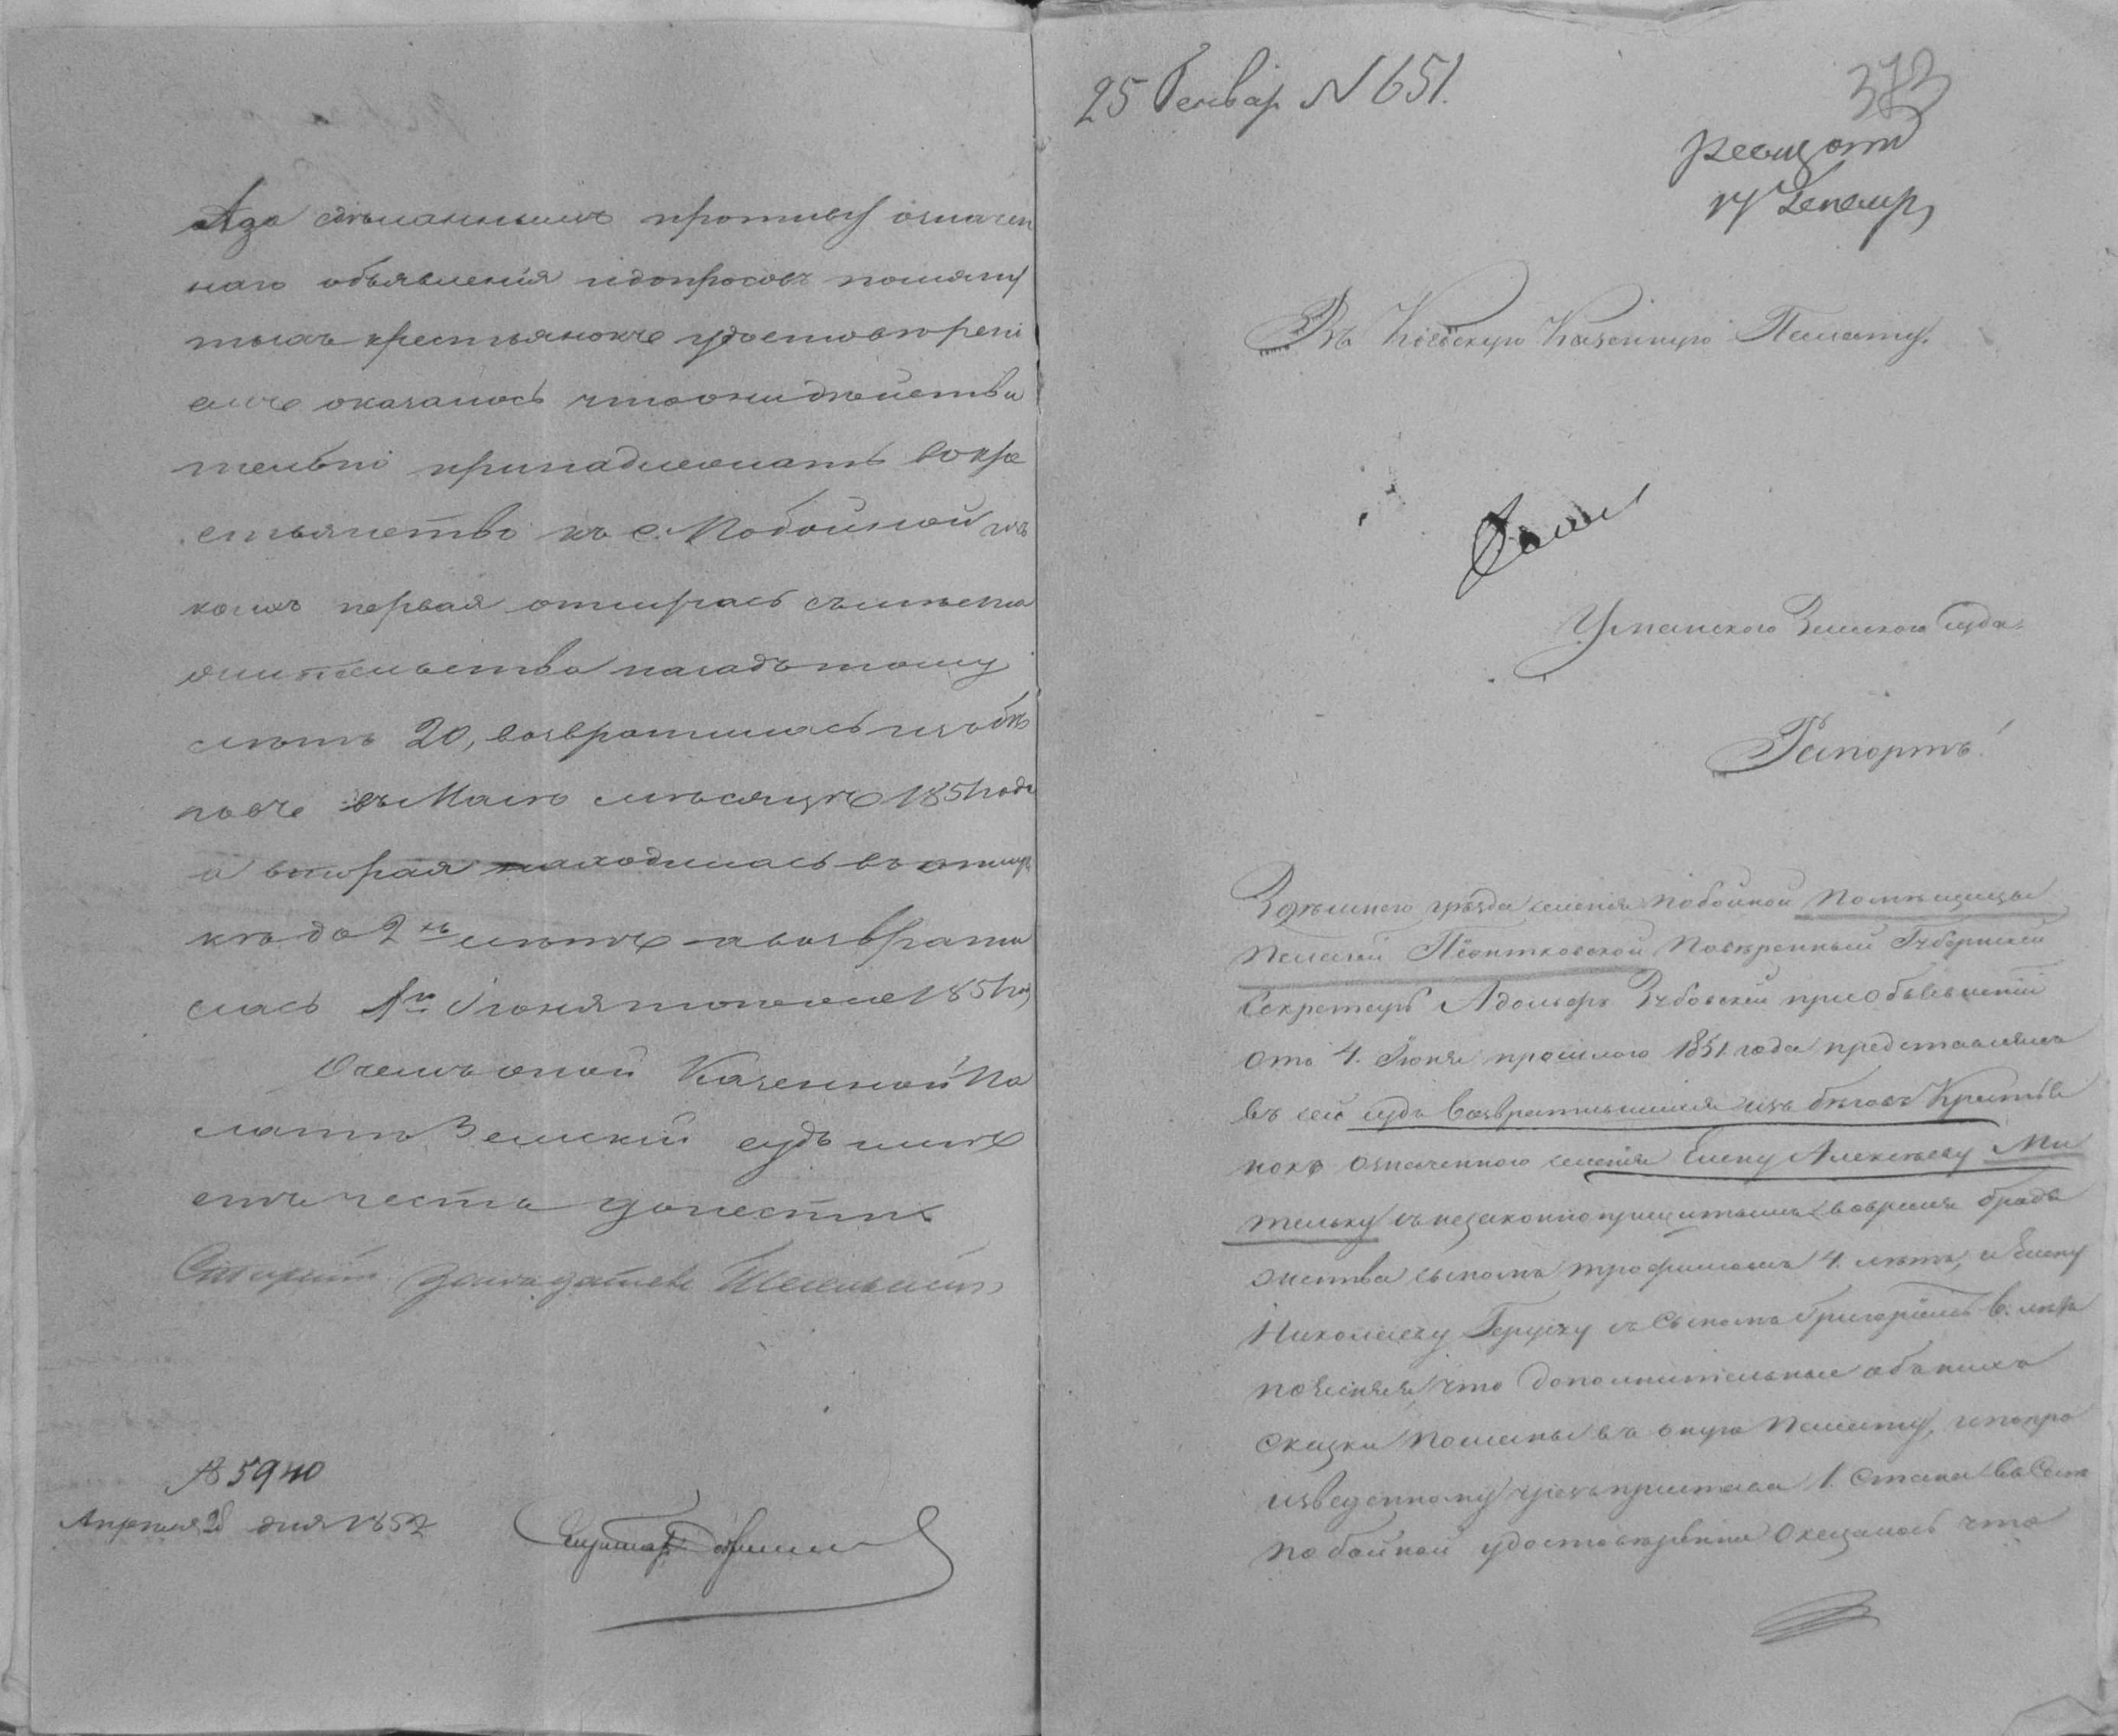 А за сдѣланнымъ противу означен
наго объявленія и допросовъ помяну
тыхъ крестьянокъ удостовѣрені
емъ оказалось что они дѣйстви
тельно принадлежатъ въ кре
стьянство къ с. Побойной изъ
коихъ первая отмирась съ мѣста
жительства назадъ тому
лѣтъ 20, возвратилась изъ бѣ
говъ въ Маѣ мѣсяцѣ 1851 года
а вторая находилась въ отлуч
кѣ до 2хъ лѣтъ а возврати
лась 1го Іюня того же 1851 год
О чемъ оной Казенной Па
латѣ Земскій судъ имѣ
етъ честь донести
Старшій Засѣдатель
№ 5940
Апрѣля 28 дня 1852
25 Генвар N 651.
373
Въ Кіевскую Казенную Палату.
Уманскаго Земскаго Суда
Рапортъ.
Здѣшнего уѣзда селенія Побойной Помѣщицы
Пелагеи Піонтковской Повѣренный Губернскій
Секретарь Адольфъ Зубовскій при объявленіи
отъ 4. Іюня прошлаго 1851 года представлялъ
въ сей судъ возвратившихся изъ бѣговъ Крестья
нокъ означеннаго селенія Елену Алексѣеву Ми
тельку съ незаконно прижитымъ во время бродя
жества сыномъ Трофимомъ 4. лѣтъ, и Елену
Николаеву Геруху съ Сыномъ Григоріемъ 6. лѣтъ
поясняя, что дополнительные объ нихъ
сказки поданы въ оную Палату, и по про
изведенному чрезъ пристава 1. Стана въ Селѣ
Побойной удостовѣренію Оказалось что